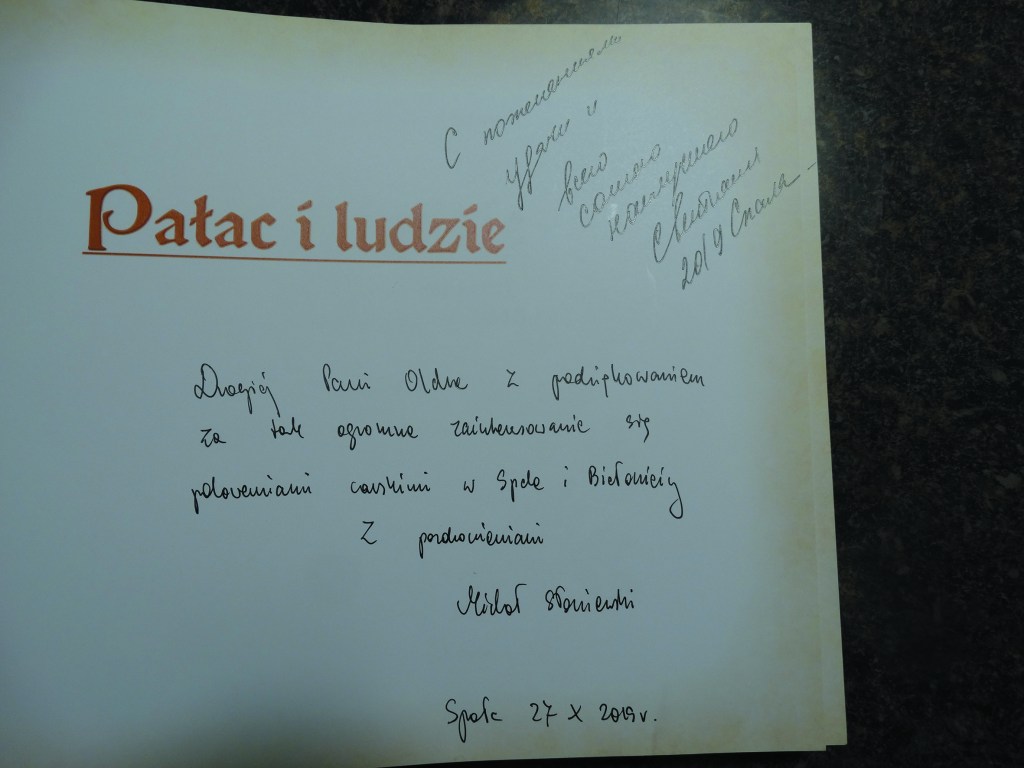 С пожеланиями
удачи и
всего
самого
наилучшего
Светлана
2019 Спала
Pałac i ludzie
Drogiej Pani z podziękowaniem
za tak ogromne zainteresowanie się
polowaniami carskimi w Spale i
Z pozdrowieniami
Michał Słoniewski
Spała 27 X 2019 r.